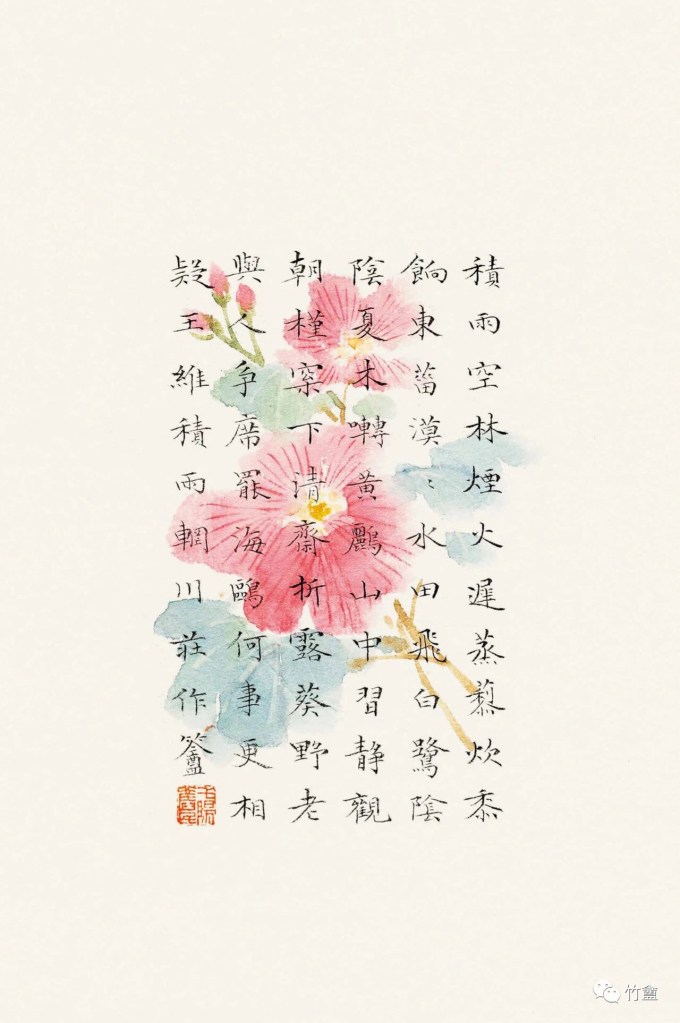 積雨空林煙火遲蒸藜炊黍
餉東菑漠〻水田飛白鷺陰
陰夏木囀黃鸝山中習靜觀
朝槿㮤下清齋折露葵野老
與人爭席罷海鷗何事更相
疑王維積雨輞川莊作竹盦
竹盦